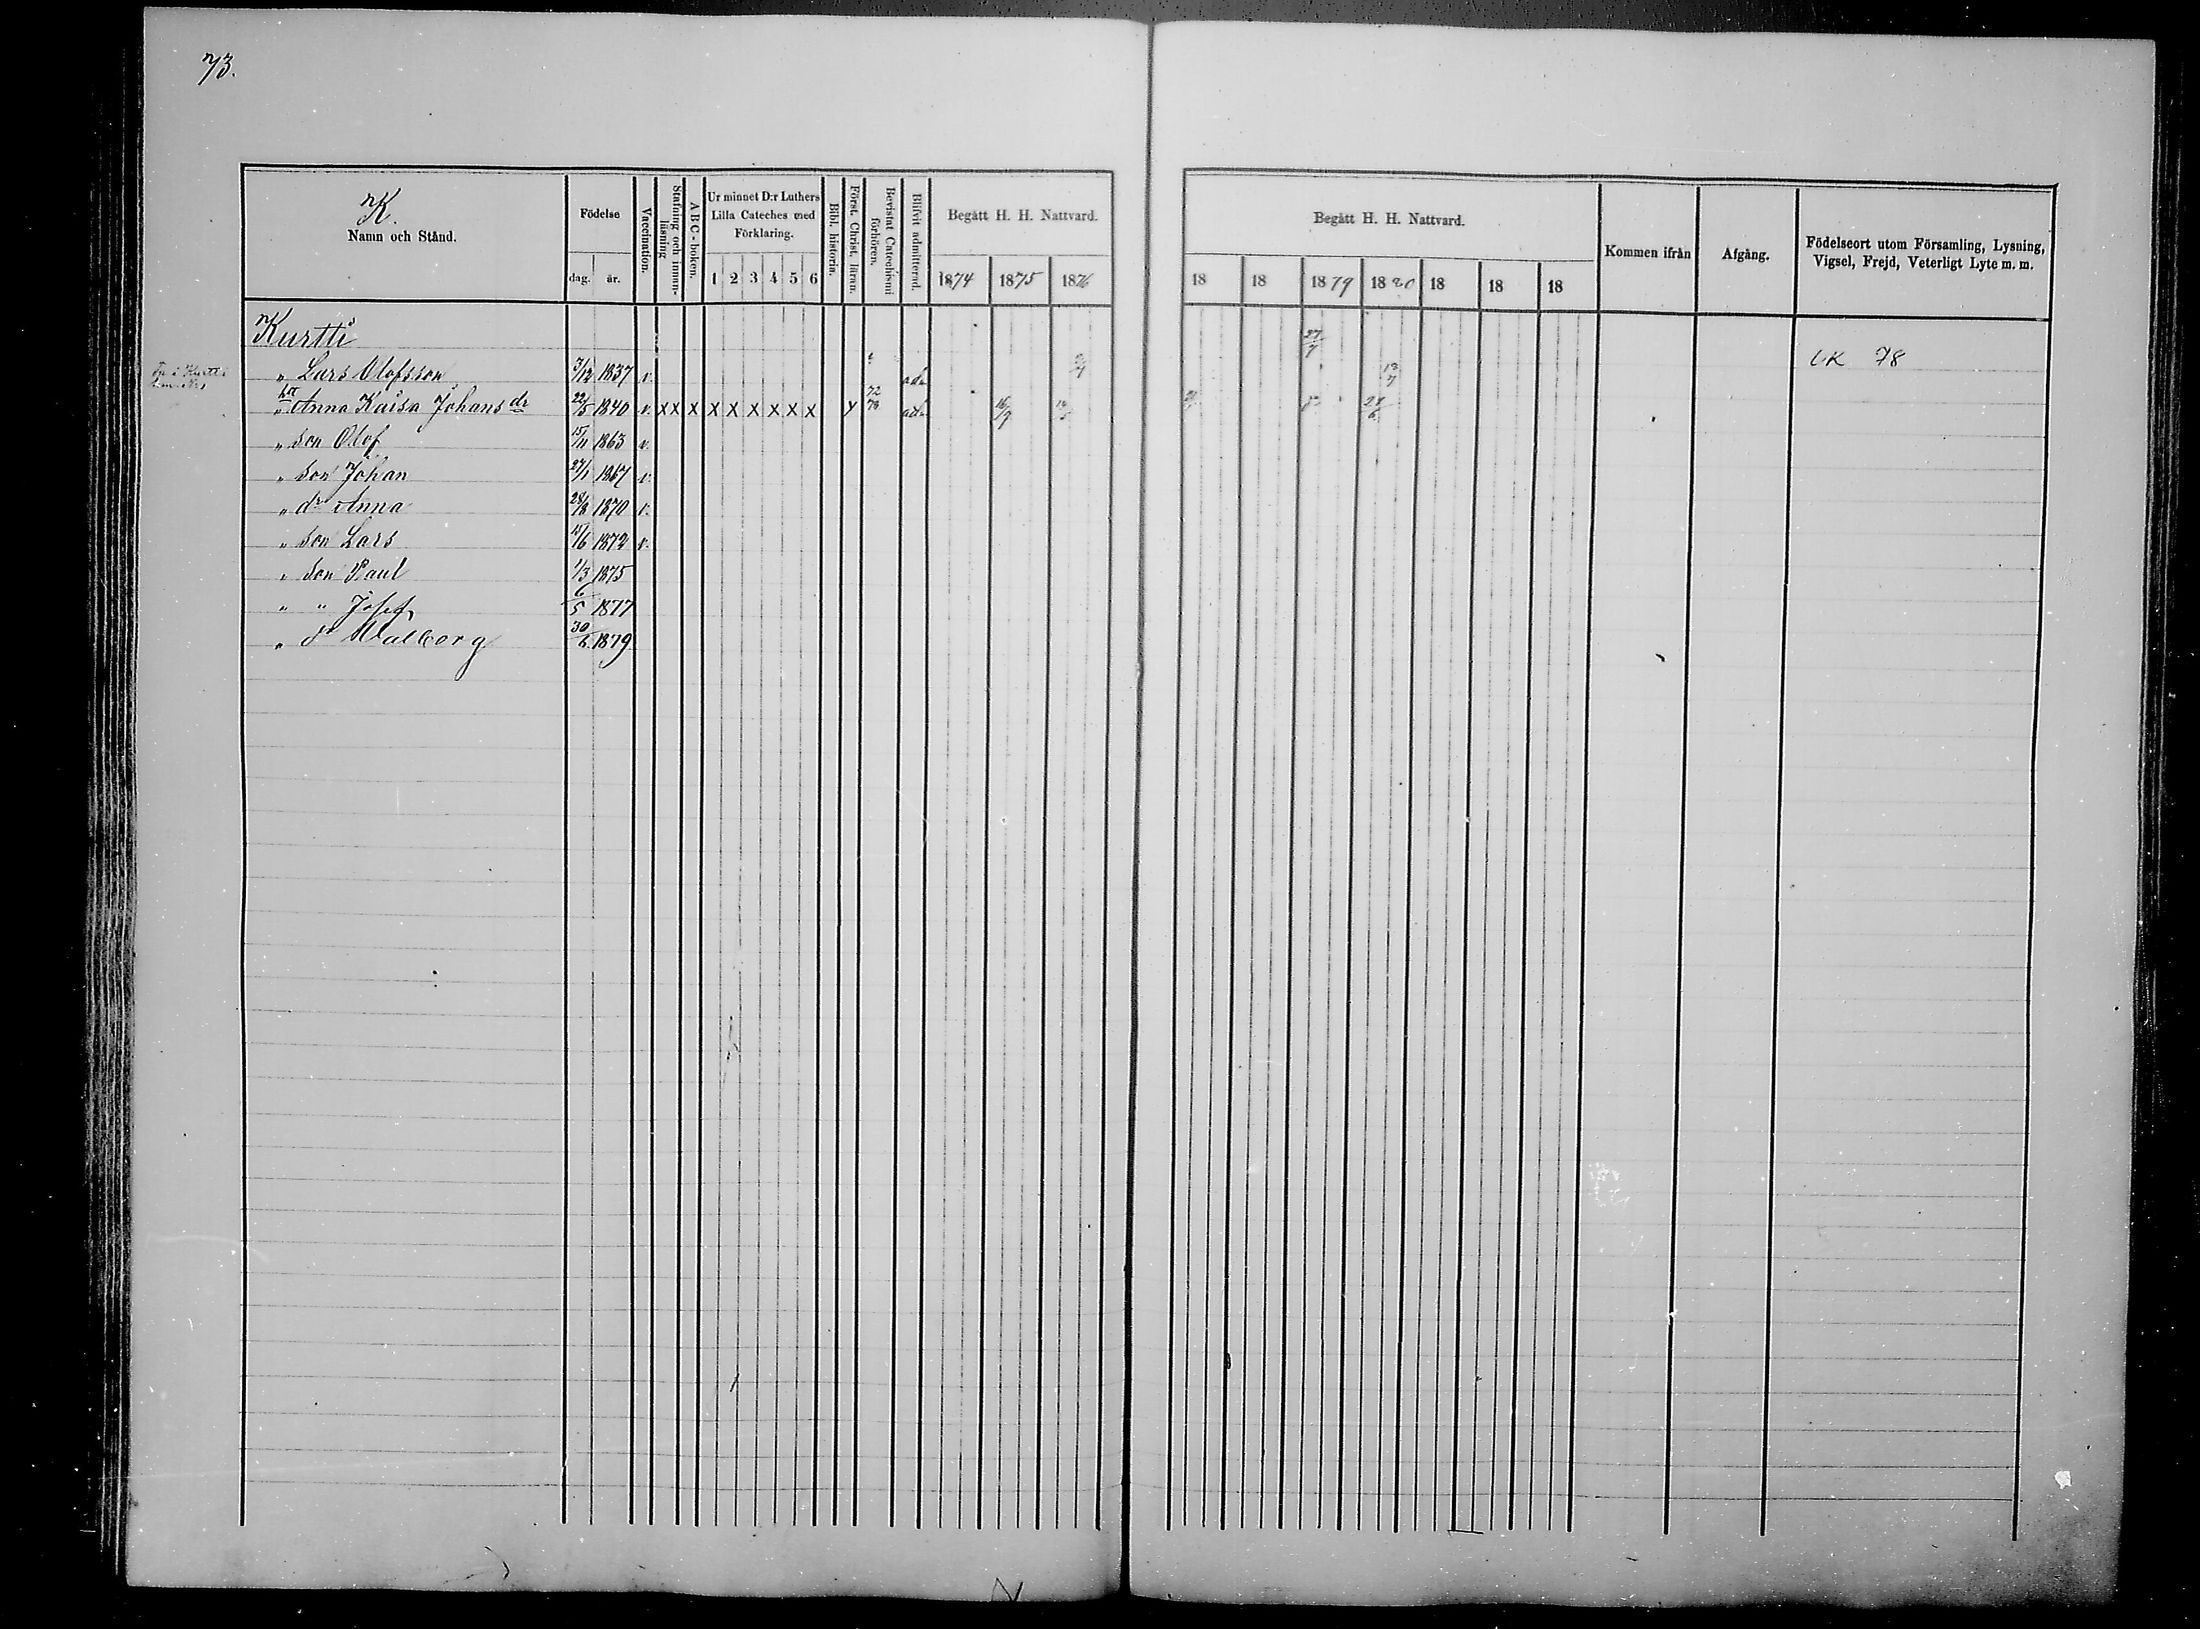 73.
K.
Namn och Stånd.
Födelse
dag. år.
Vaccination.
Stafning och innanläsning
ABC-boken.
Ur minnet D:r Luthers Lilla Cateches med Förklaring.
1 2 3 4 5 6
Bibl. historia.
Först. Christ. läran.
Bevistat Catechismi förhören.
Blifvit admitterad.
Begått H. H. Nattvard.
1874 1875 1876
Begått H. H. Nattvard.
18 18 1879 1880 18 18 18
Kommen ifrån
Afgång.
Födelseort utom Församling, Lysning, Vigsel, Frejd, Veterligt Lyte m. m.
Kurtti 27/7
" Lars Olofsson 3/12 1837 v. adm 12/7 LK 78
" Anna Kaisa Johans dr 22/5 1840 v. x x x x x x x x x y 72 78 adm 16/9 28/6
" son Olof 15/11 1863 v.
" son Johan 27/1 1867 v.
" dr Anna 28/8 1870 v.
" son Lars 15/6 1872 v.
" son Paul 1/3 1875
" " Josef 6/5 1877
" dr Walborg 30/6 1879